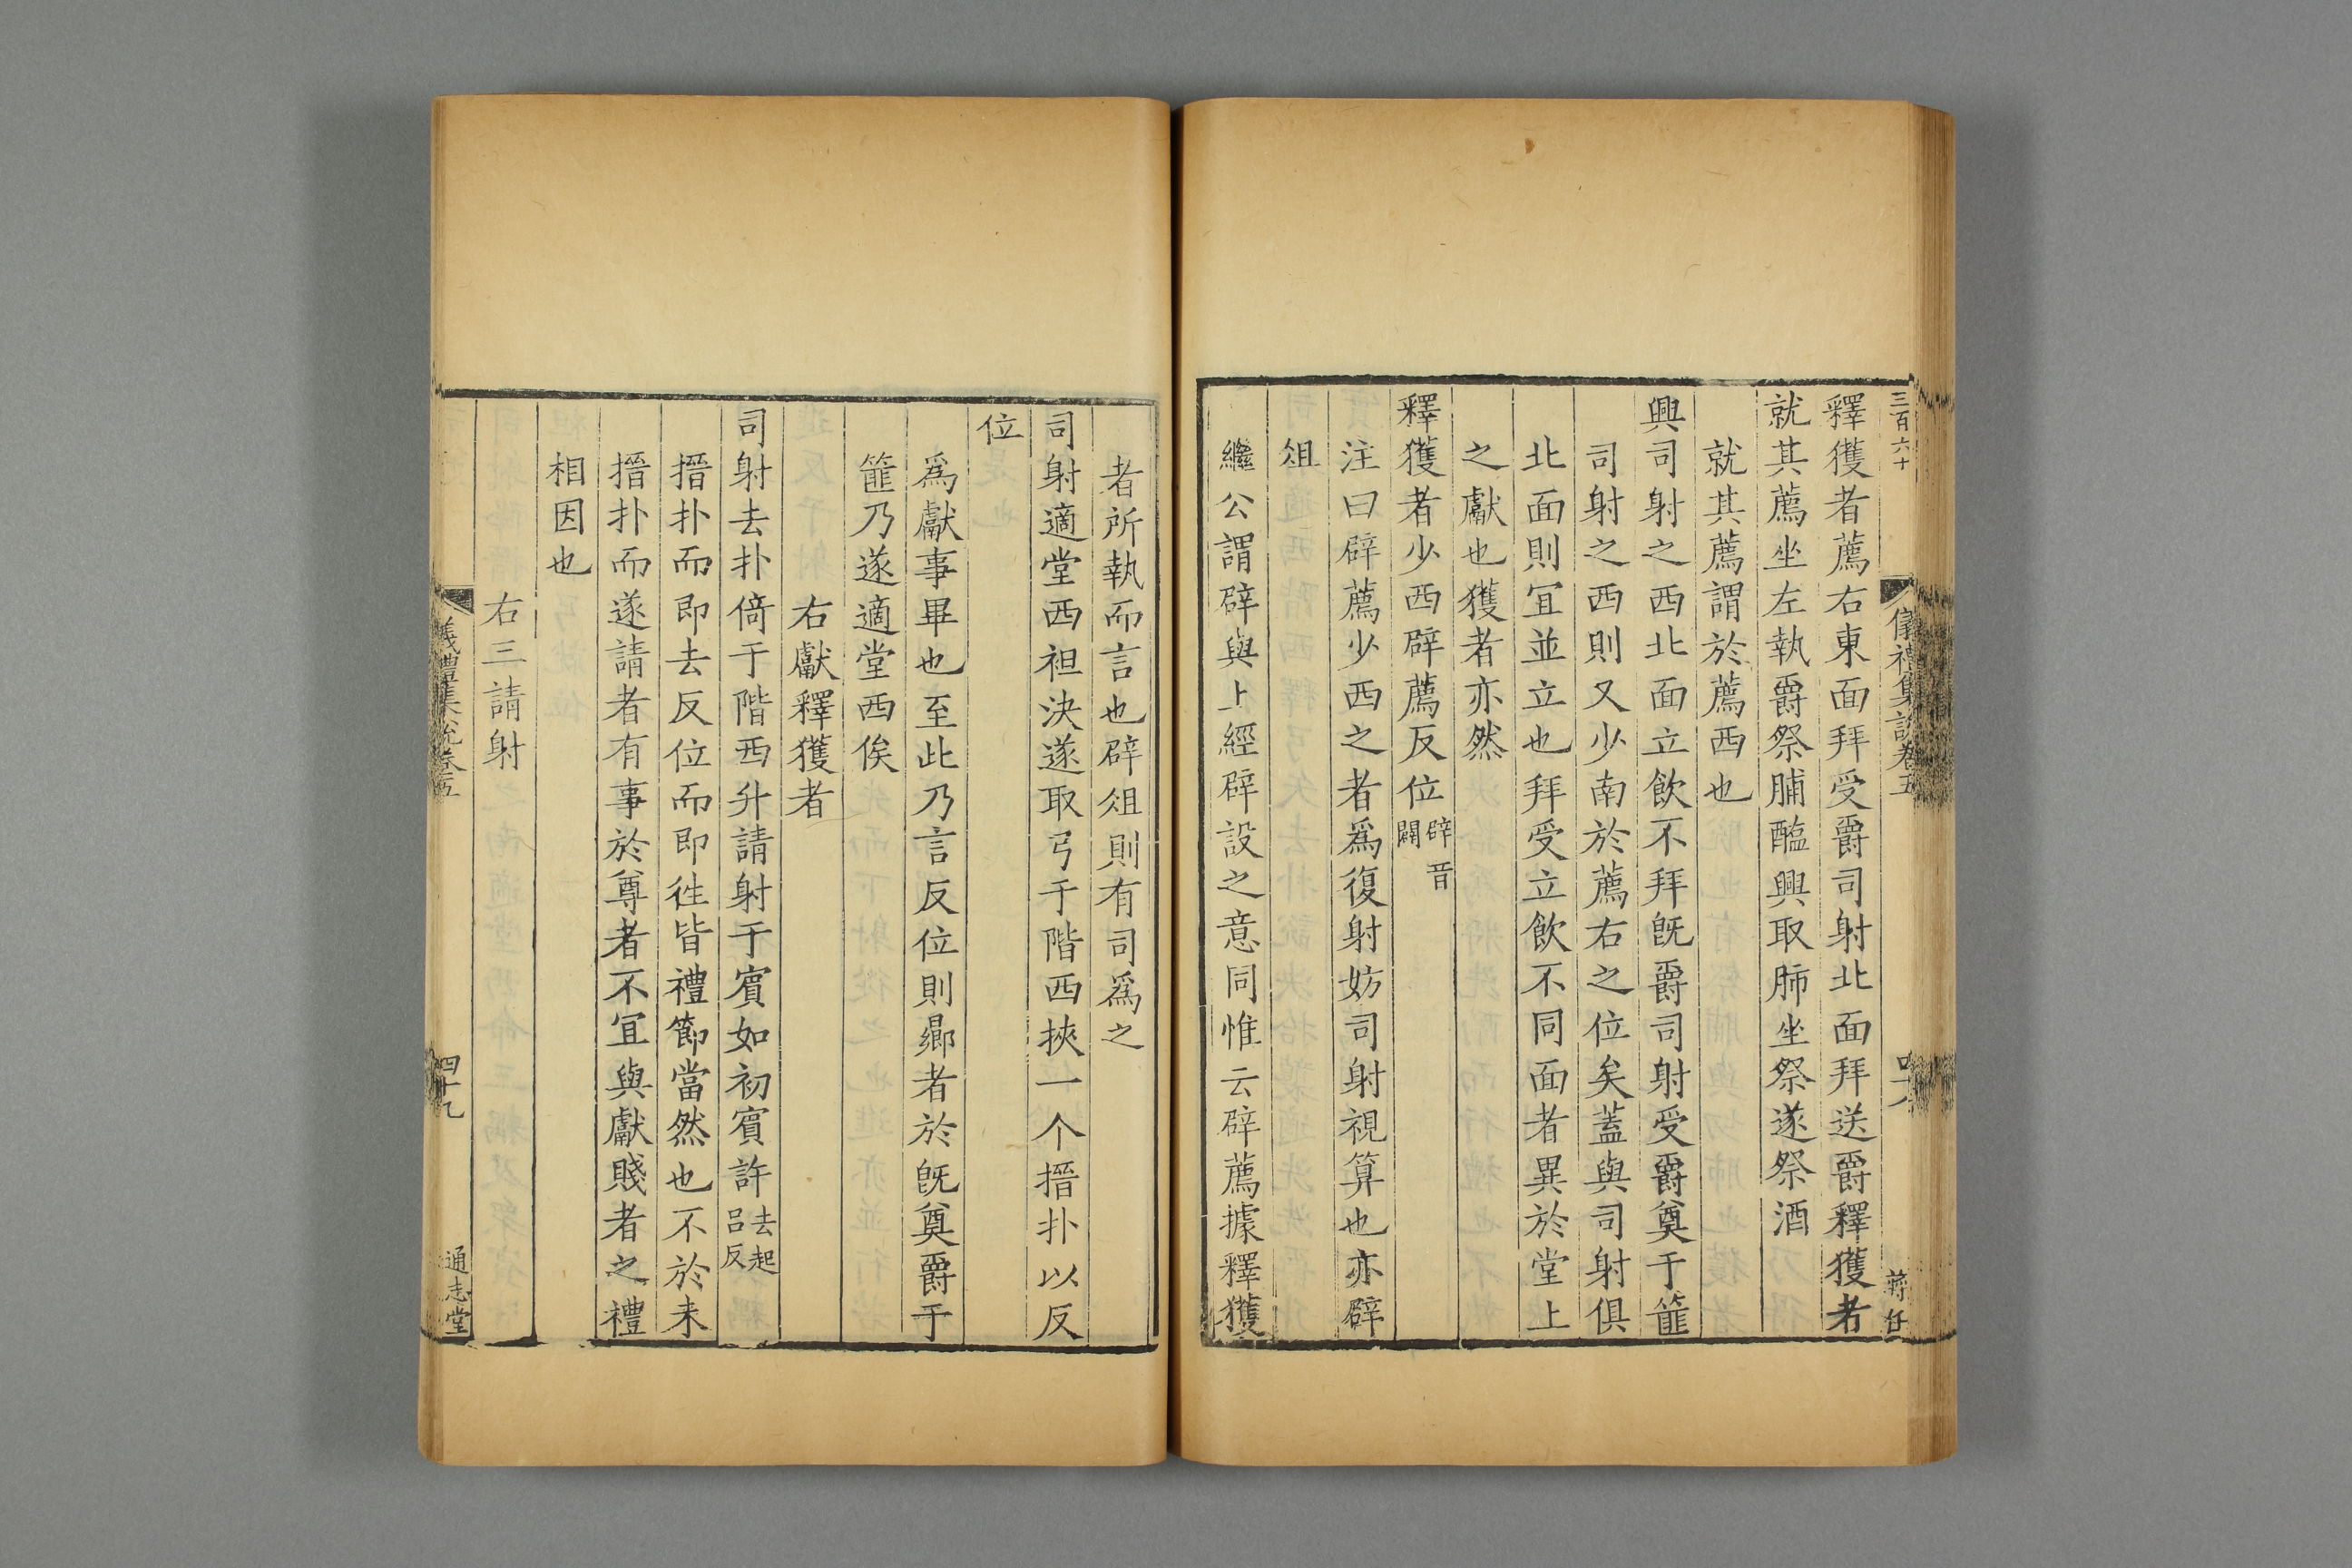 三百六十
儀禮集說卷五
蔣任
釋獲者薦右東面拜受爵司射北面拜送爵釋獲者
就其薦坐左執爵祭脯醢興取肺坐祭遂祭酒
就其薦謂於薦西也
興司射之西北面立飲不拜旣爵司射受爵奠于篚
司射之西則又少南於薦右之位矣蓋與司射俱
北面則宜並立也拜受立飲不同面者異於堂上
之獻也獲者亦然
釋獲者少西辟薦反位辟音闢
注曰辟薦少西之者爲復射妨司射視算也亦辟
俎
繼公謂辟與上經辟設之意同惟云辟薦據釋獲
者所執而言也辟俎則有司爲之
司射適堂西袒決遂取弓于階西挾一个搢扑以反
位
爲獻事畢也至此乃言反位則鄉者於旣奠爵于
篚乃遂適堂西俟
右獻釋獲者
司射去扑倚于階西升請射于賓如初賓許去起呂反
搢扑而即去反位而即徃皆禮節當然也不於未
搢扑而遂請者有事於尊者不宜與獻賤者之禮
相因也
右三請射
儀禮集說卷五
四十九
通志堂